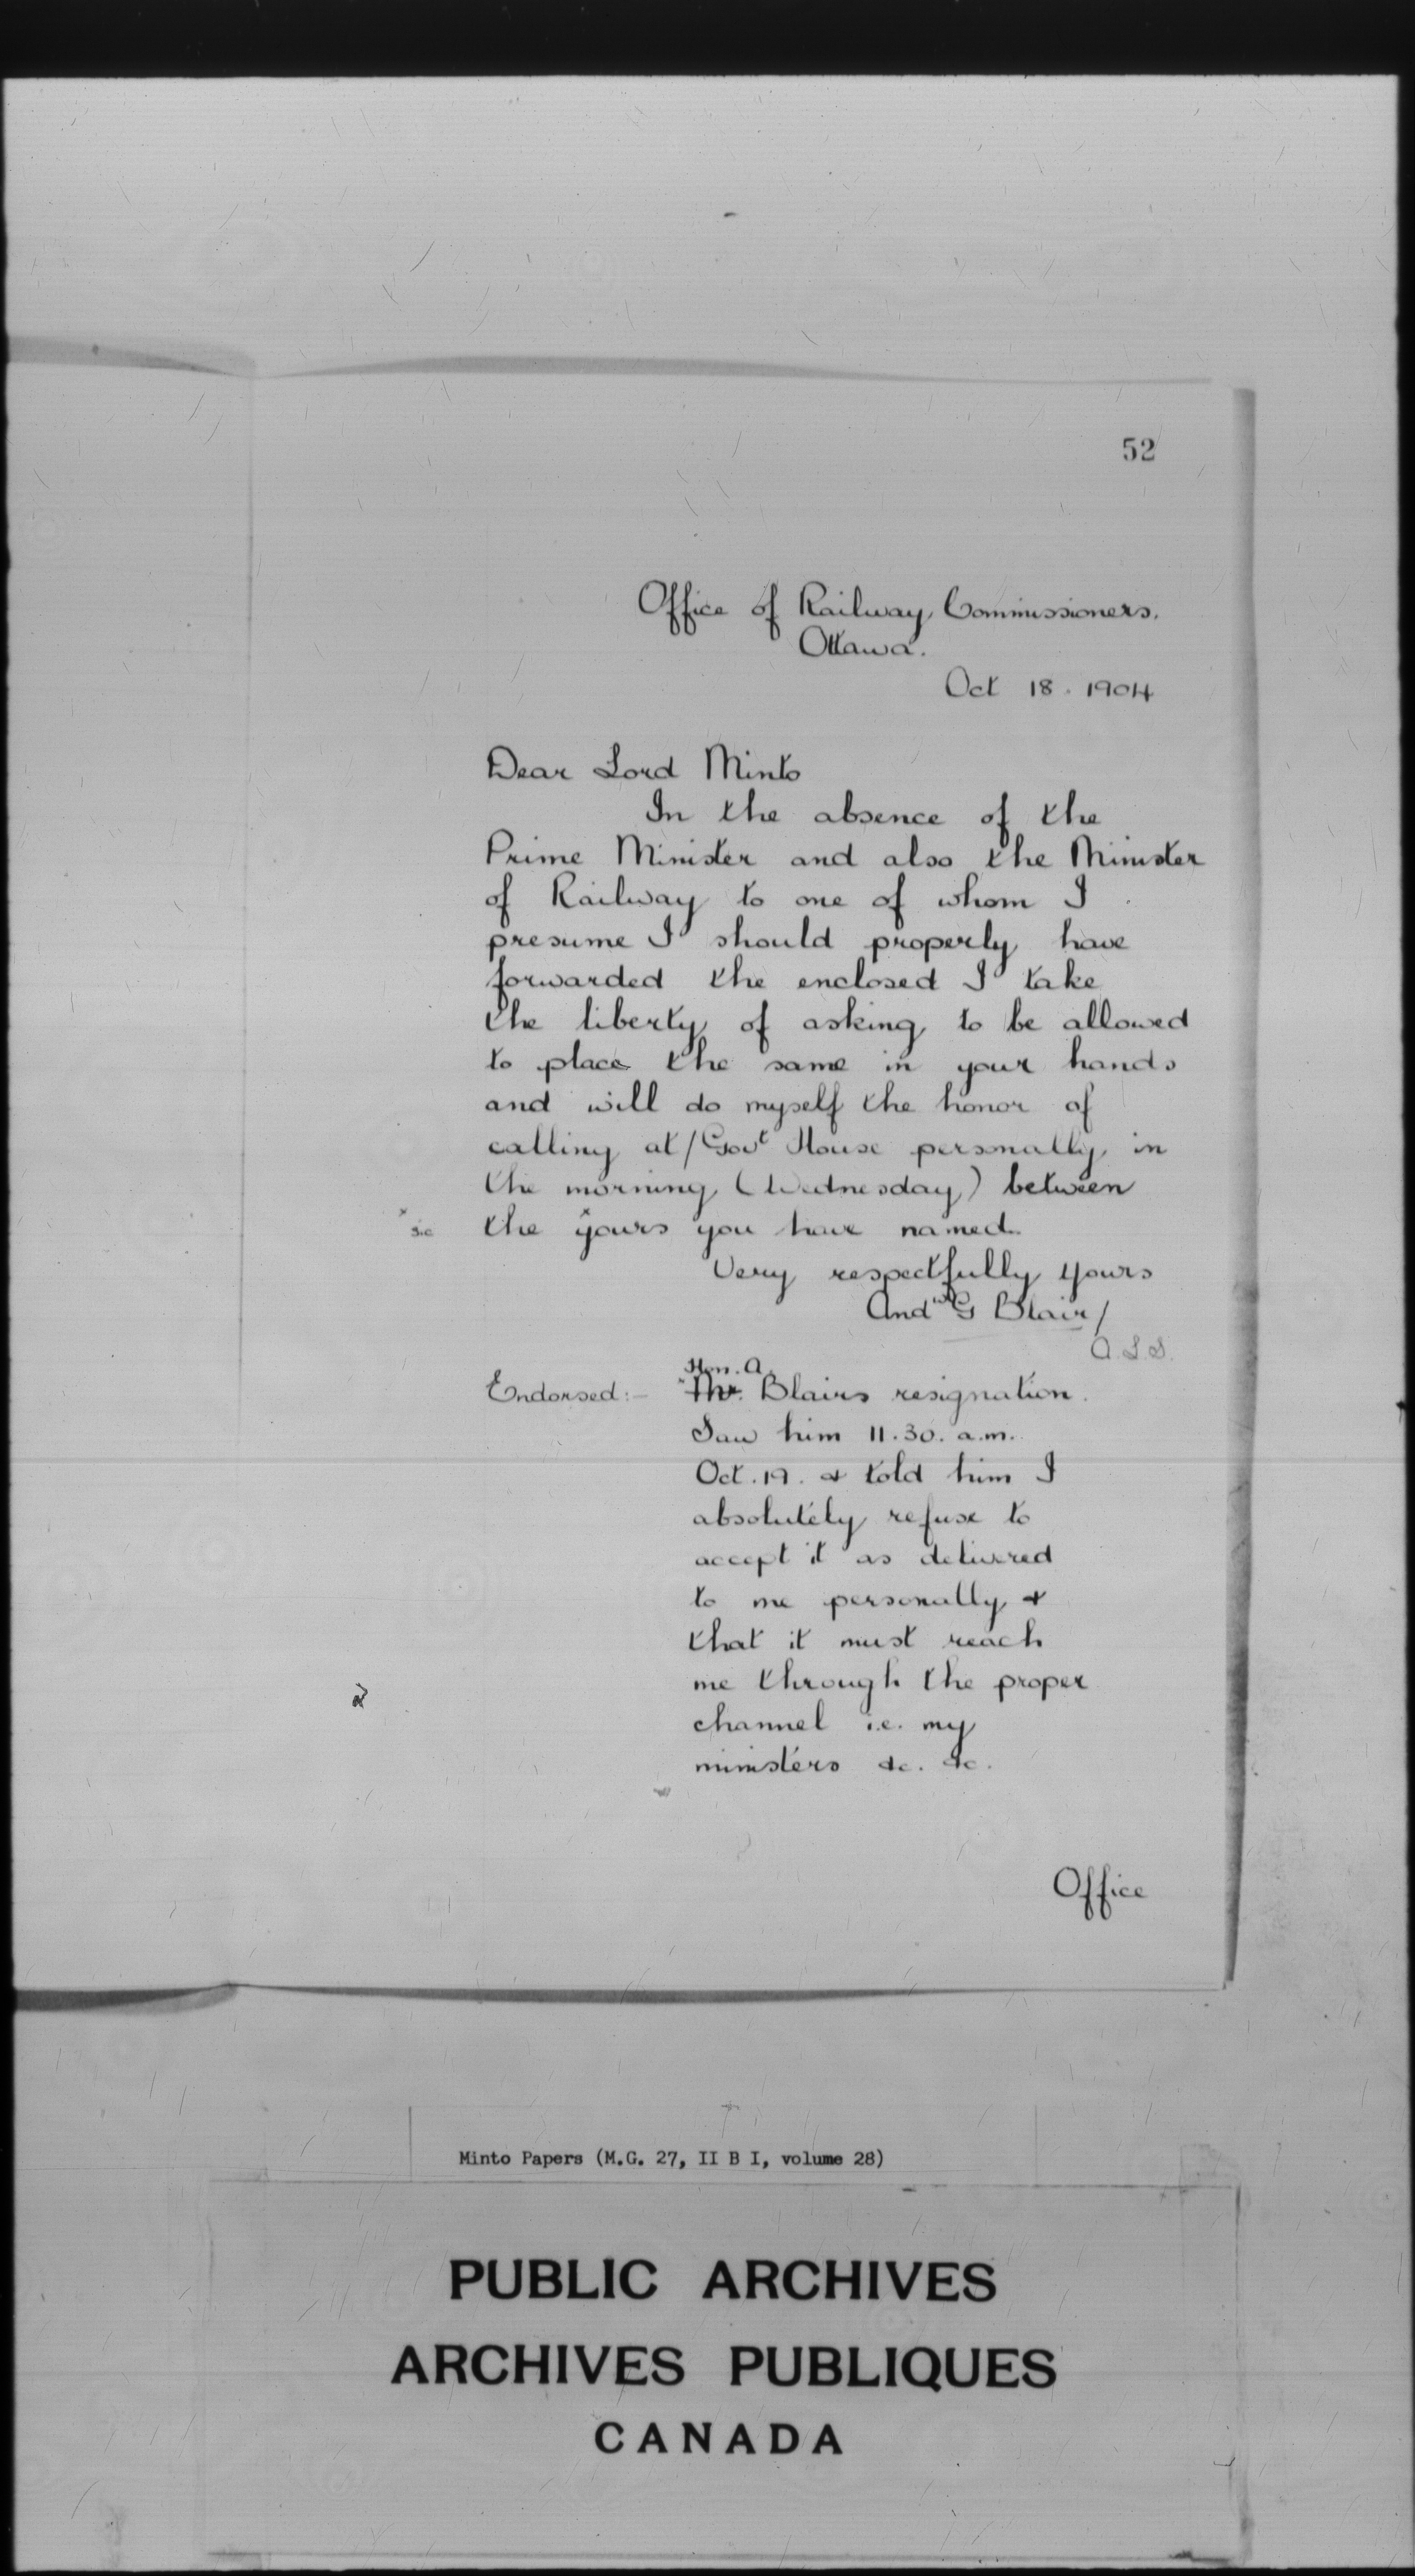 52
Office of Railway Commissioners.
Ottawa.
Oct 18. 1904
Dear Lord Minto
In the absence of the
Prime Minister and also the Minister
of Railway to one of whom I
presume I should properly have
forwarded the enclosed I take
the liberty of asking to be allowed
to place the same in your hands
and will do myself the honor of
calling at/Govt House personally in
the morning (Wednesday) between
x sic the yours x you have named.
Very respectfully yours
Andw G Blair/
A.L.S.
Hon. A.
Endorsed:- "Mr. Blairs resignation.
Saw him 11.30. a.m.
Oct. 19. & told him I
absolutely refuse to
accept it as delivered
to me personally &
that it must reach
me through the proper
channel i.e. my
ministers &c. &c.
Office
Minto Papers (M.G. 27, II B I, volume 28)
PUBLIC ARCHIVES
ARCHIVES PUBLIQUES
CANADA